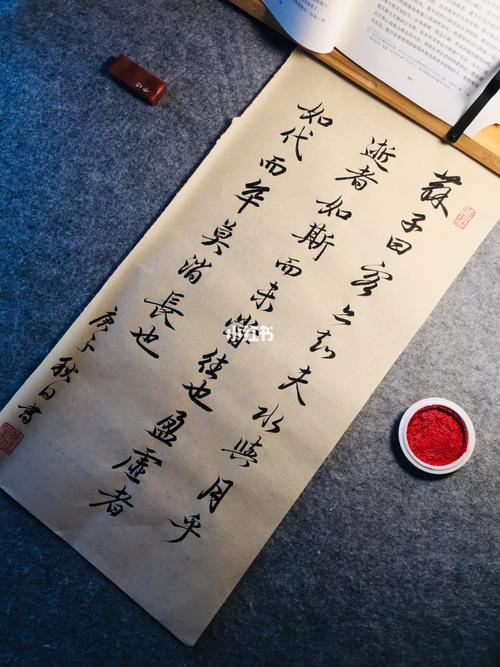 蘇子曰客亦知夫水與月乎
逝者如斯而未嘗往也盈虛者
如代而卒莫消長也
庚子秋日書
小红书